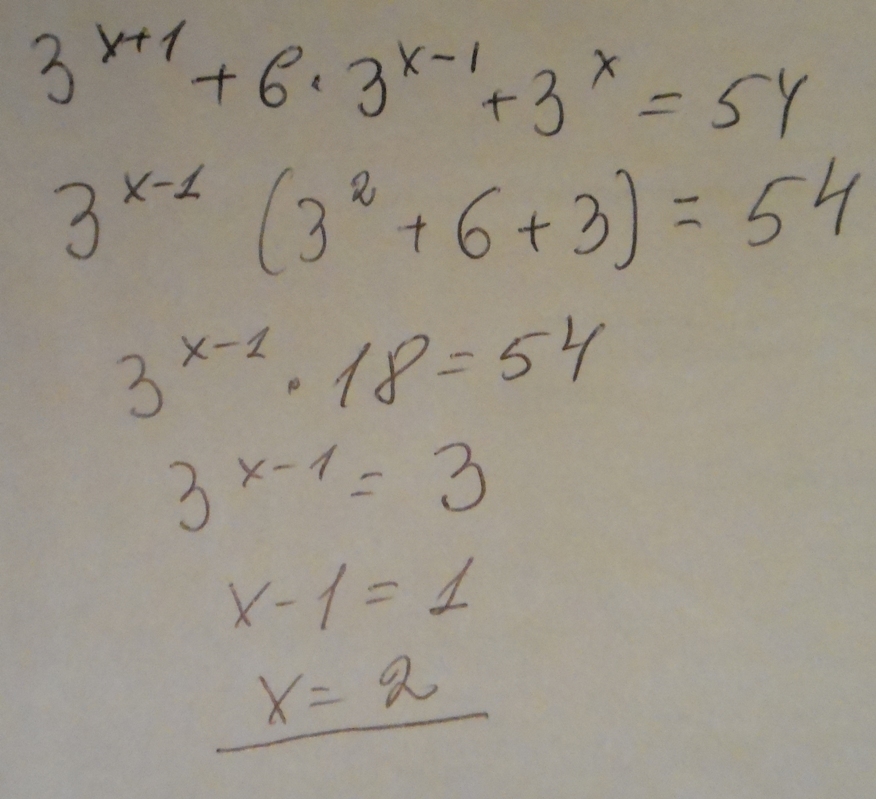 3^{x+1} + 6 · 3^{x-1} + 3^x = 54
3^{x-1} (3^2 + 6 + 3) = 54
3^{x-1} · 18 = 54
3^{x-1} = 3
x - 1 = 1
x = 2